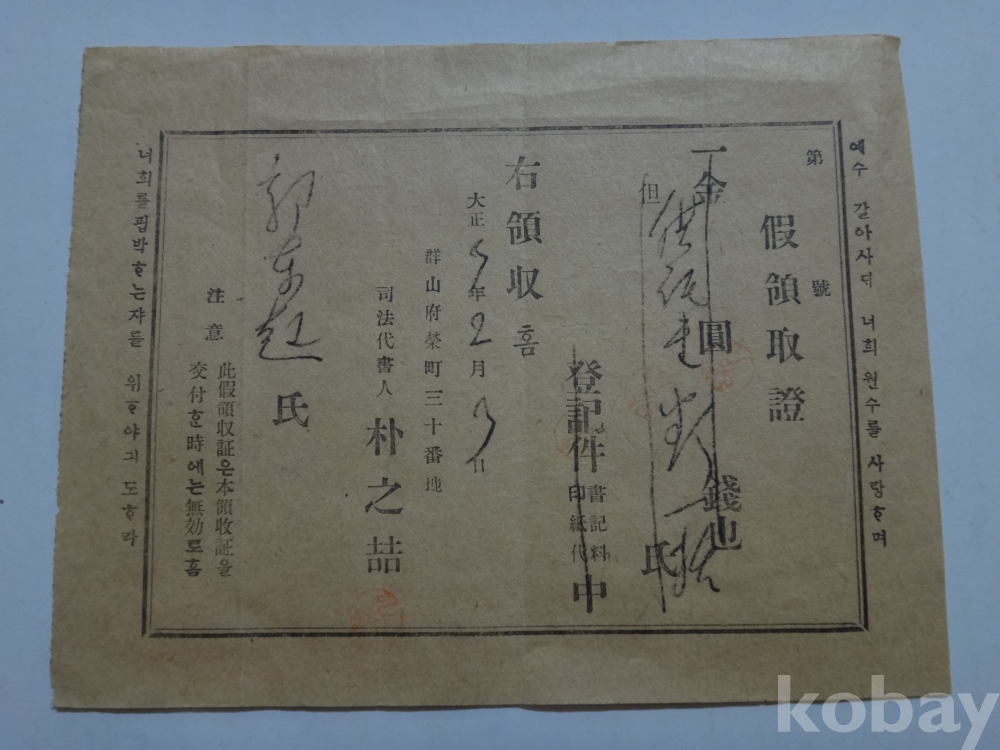 예수 갈아사ᄃᆡ 너희 원수를 사랑ᄒᆞ며
第 號
假領取證
一金 圓 錢也
但 氏
登記件 書記料 印紙代 中
右領収홈
大正 年 2月 日
群山府榮町三十番地
司法代書人 朴之喆
氏
注意
此假領収証은本領收証을
交付ᄒᆞᆫ時에는無効로홈
너희를핍박ᄒᆞ는쟈를 위ᄒᆞ야긔도ᄒᆞ라
kobay